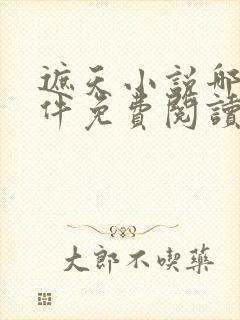 遮天小說哪
件免費閱讀
大郎不喫藥